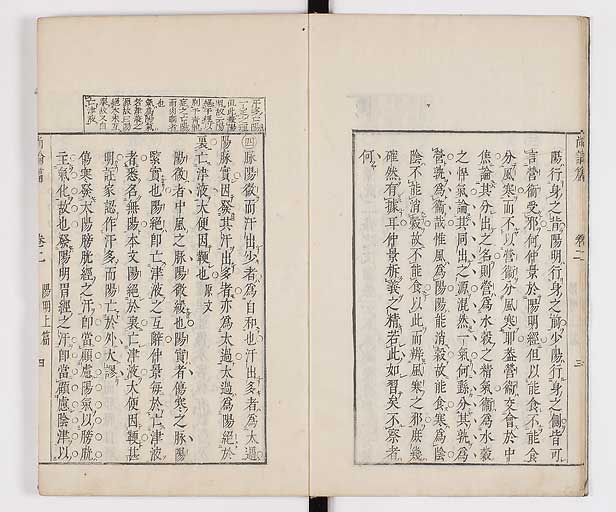 陽行身之背陽明行身之前少陽行身之側皆可
言營衞受邪何仲景於陽明經但以能食不能食
分風寒而不以營衞分風寒耶蓋營衞交會於中
焦論其分出之名則營爲水穀之精氣衞爲水穀
之悍氣論其同出之源混然一氣何繇分其孰爲
營孰爲衞哉惟風爲陽陽能消穀故能食寒爲陰
陰不能消穀故不能食以此而辨風寒之邪庶幾
確然有據耳仲景析義之精若此如習矣不察者
何
尚論篇
卷二
三
亡津液
㊃脉陽微而汗出少者爲自和也汗出多者爲太過
陽脉實因發其汗出多者亦爲太過太過爲陽絕於
裏亡津液大便因鞕也原文
陽微者中風之脉陽微緩也陽實者傷寒之脉陽
緊實也陽絕卽亡津液之互辭仲景每於亡津液
者悉名無陽本文陽絕於裏亡津液大便因鞕甚
明註家認作汗多而陽亡於外大謬
傷寒發太陽膀胱經之汗卽當顧慮陽氣以膀胱
主氣化故也發陽明胃經之汗卽當顧慮陰津以
尚論篇
卷二
陽明上篇
四